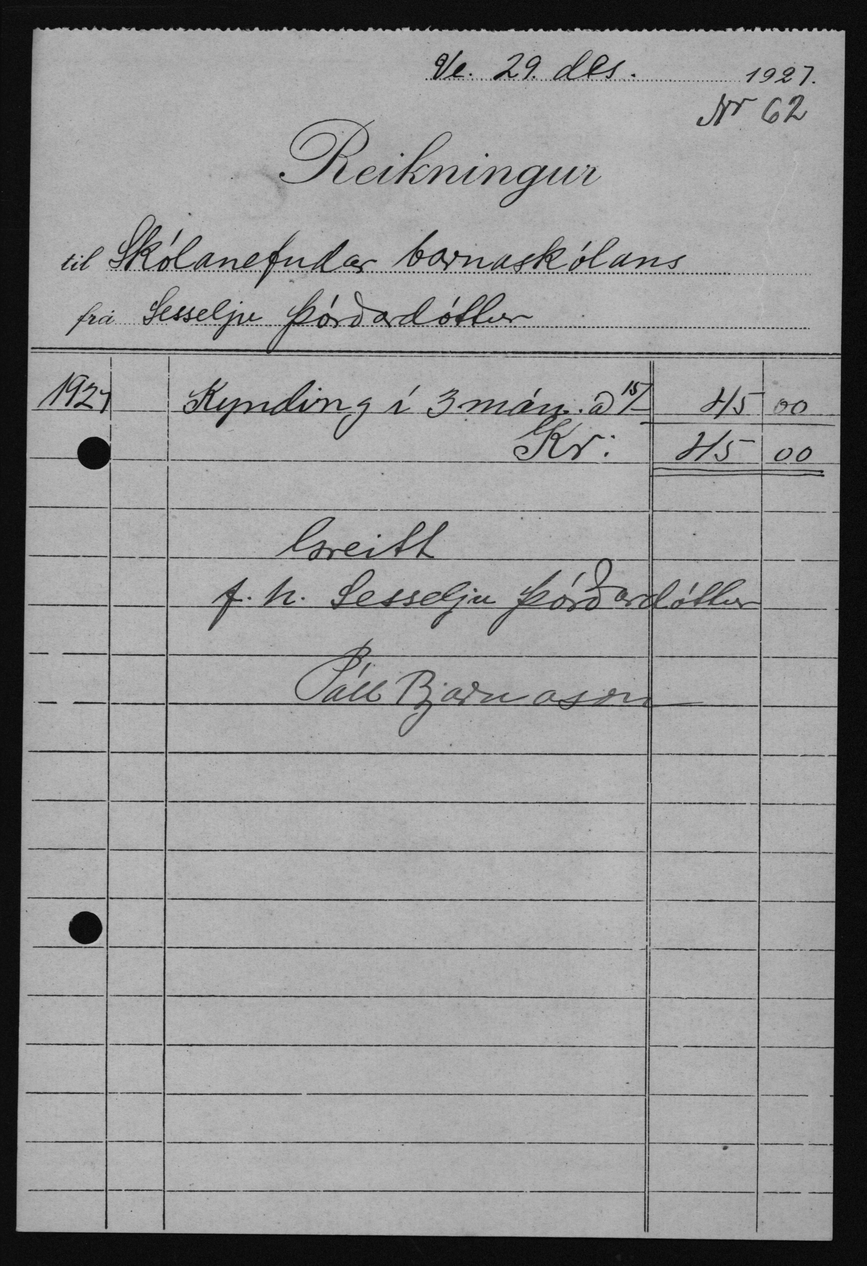 Ve. 29. des. 1927.
Nr 62
Reikningur
til Skólanefndar barnaskólans
frá Sesselju Þórðardóttur
1927 Kynding í 3 mán. à 15/- 45 00
Kr: 45 00
Greitt
f. h. Sesselju Þórðardóttur
Páll Bjarnason